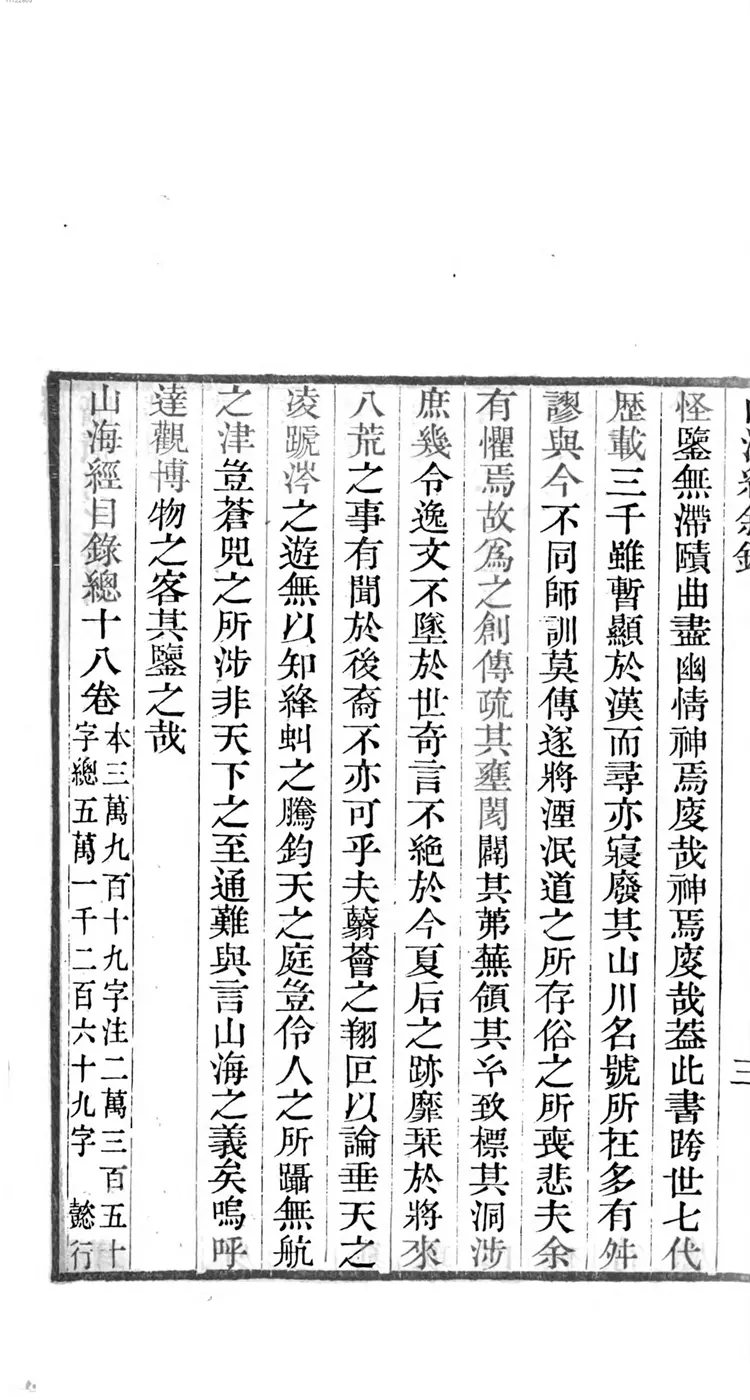 三
怪鑒無滯賾曲盡幽情神焉廋哉神焉廋哉蓋此書跨世七代
歷載三千雖暫顯於漢而尋亦寢廢其山川名號所在多有舛
謬與今不同師訓莫傳遂將湮泯道之所存俗之所喪悲夫余
有懼焉故爲之創傳疏其壅閡闢其茀蕪領其玄致標其洞涉
庶幾令逸文不墜於世奇言不絕於今夏后之跡靡栞於將來
八荒之事有聞於後裔不亦可乎夫蘙薈之翔叵以論垂天之
凌蹏涔之遊無以知絳虯之騰鈞天之庭豈伶人之所躡無航
之津豈蒼兕之所涉非天下之至通難與言山海之義矣嗚呼
達觀博物之客其鑒之哉
山海經目錄總十八卷
本三萬九百十九字注二萬三百五十
字總五萬一千二百六十九字 懿行